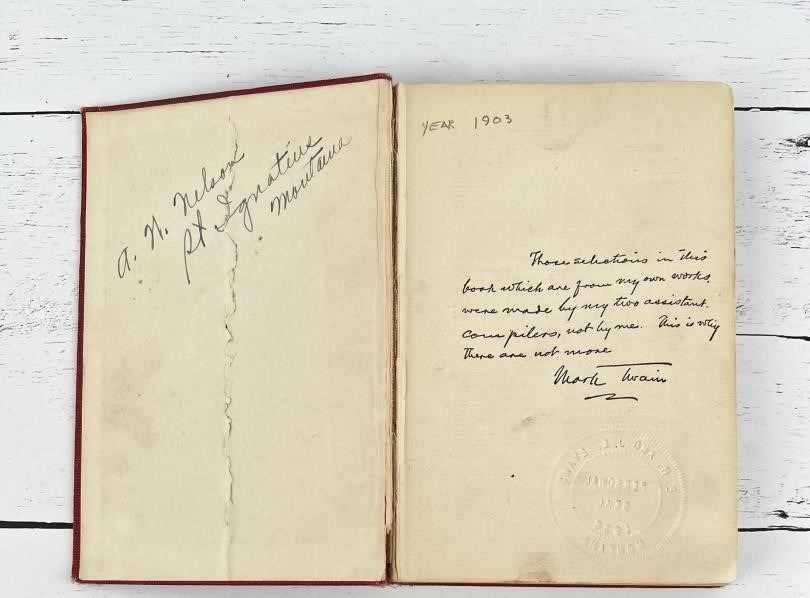 A. N. Nelson
St Ignatius
Montana
YEAR 1903
Those selections in this
book which are from my own works,
were made by my two assistant
compilers, not by me. This is why
there are not more
Mark Twain
AND J.E. EVANS
PERSONAL
SEAL
MONTANA